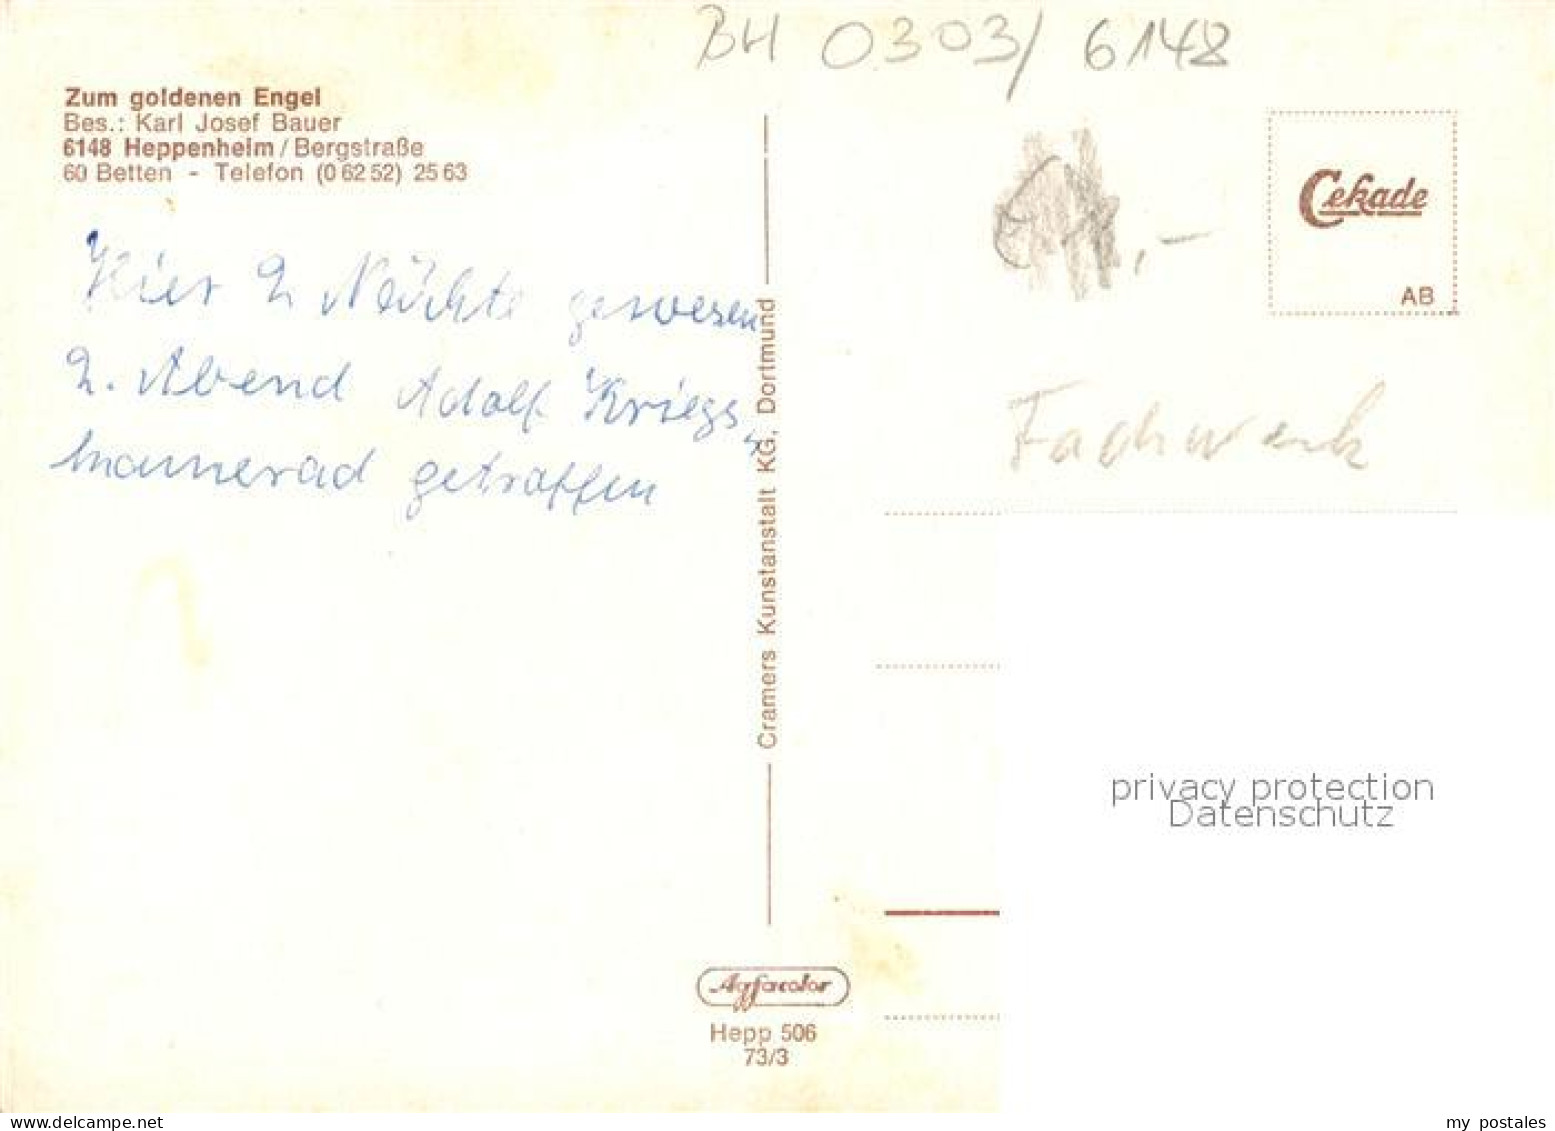 BH 0303/ 6148
Zum goldenen Engel
Bes.: Karl Josef Bauer
6148 Heppenheim/Bergstraße
60 Betten - Telefon (0 62 52) 25 63
Cekade
AB
,-
Hier 2 Nächte gewesen
2. Abend Adolf Kriegs,
kamerad getroffen
Fachwerk
Cramers Kunstanstalt KG, Dortmund
privacy protection
Datenschutz
Agfacolor
Hepp 506
73/3
delcampe.net
my postales